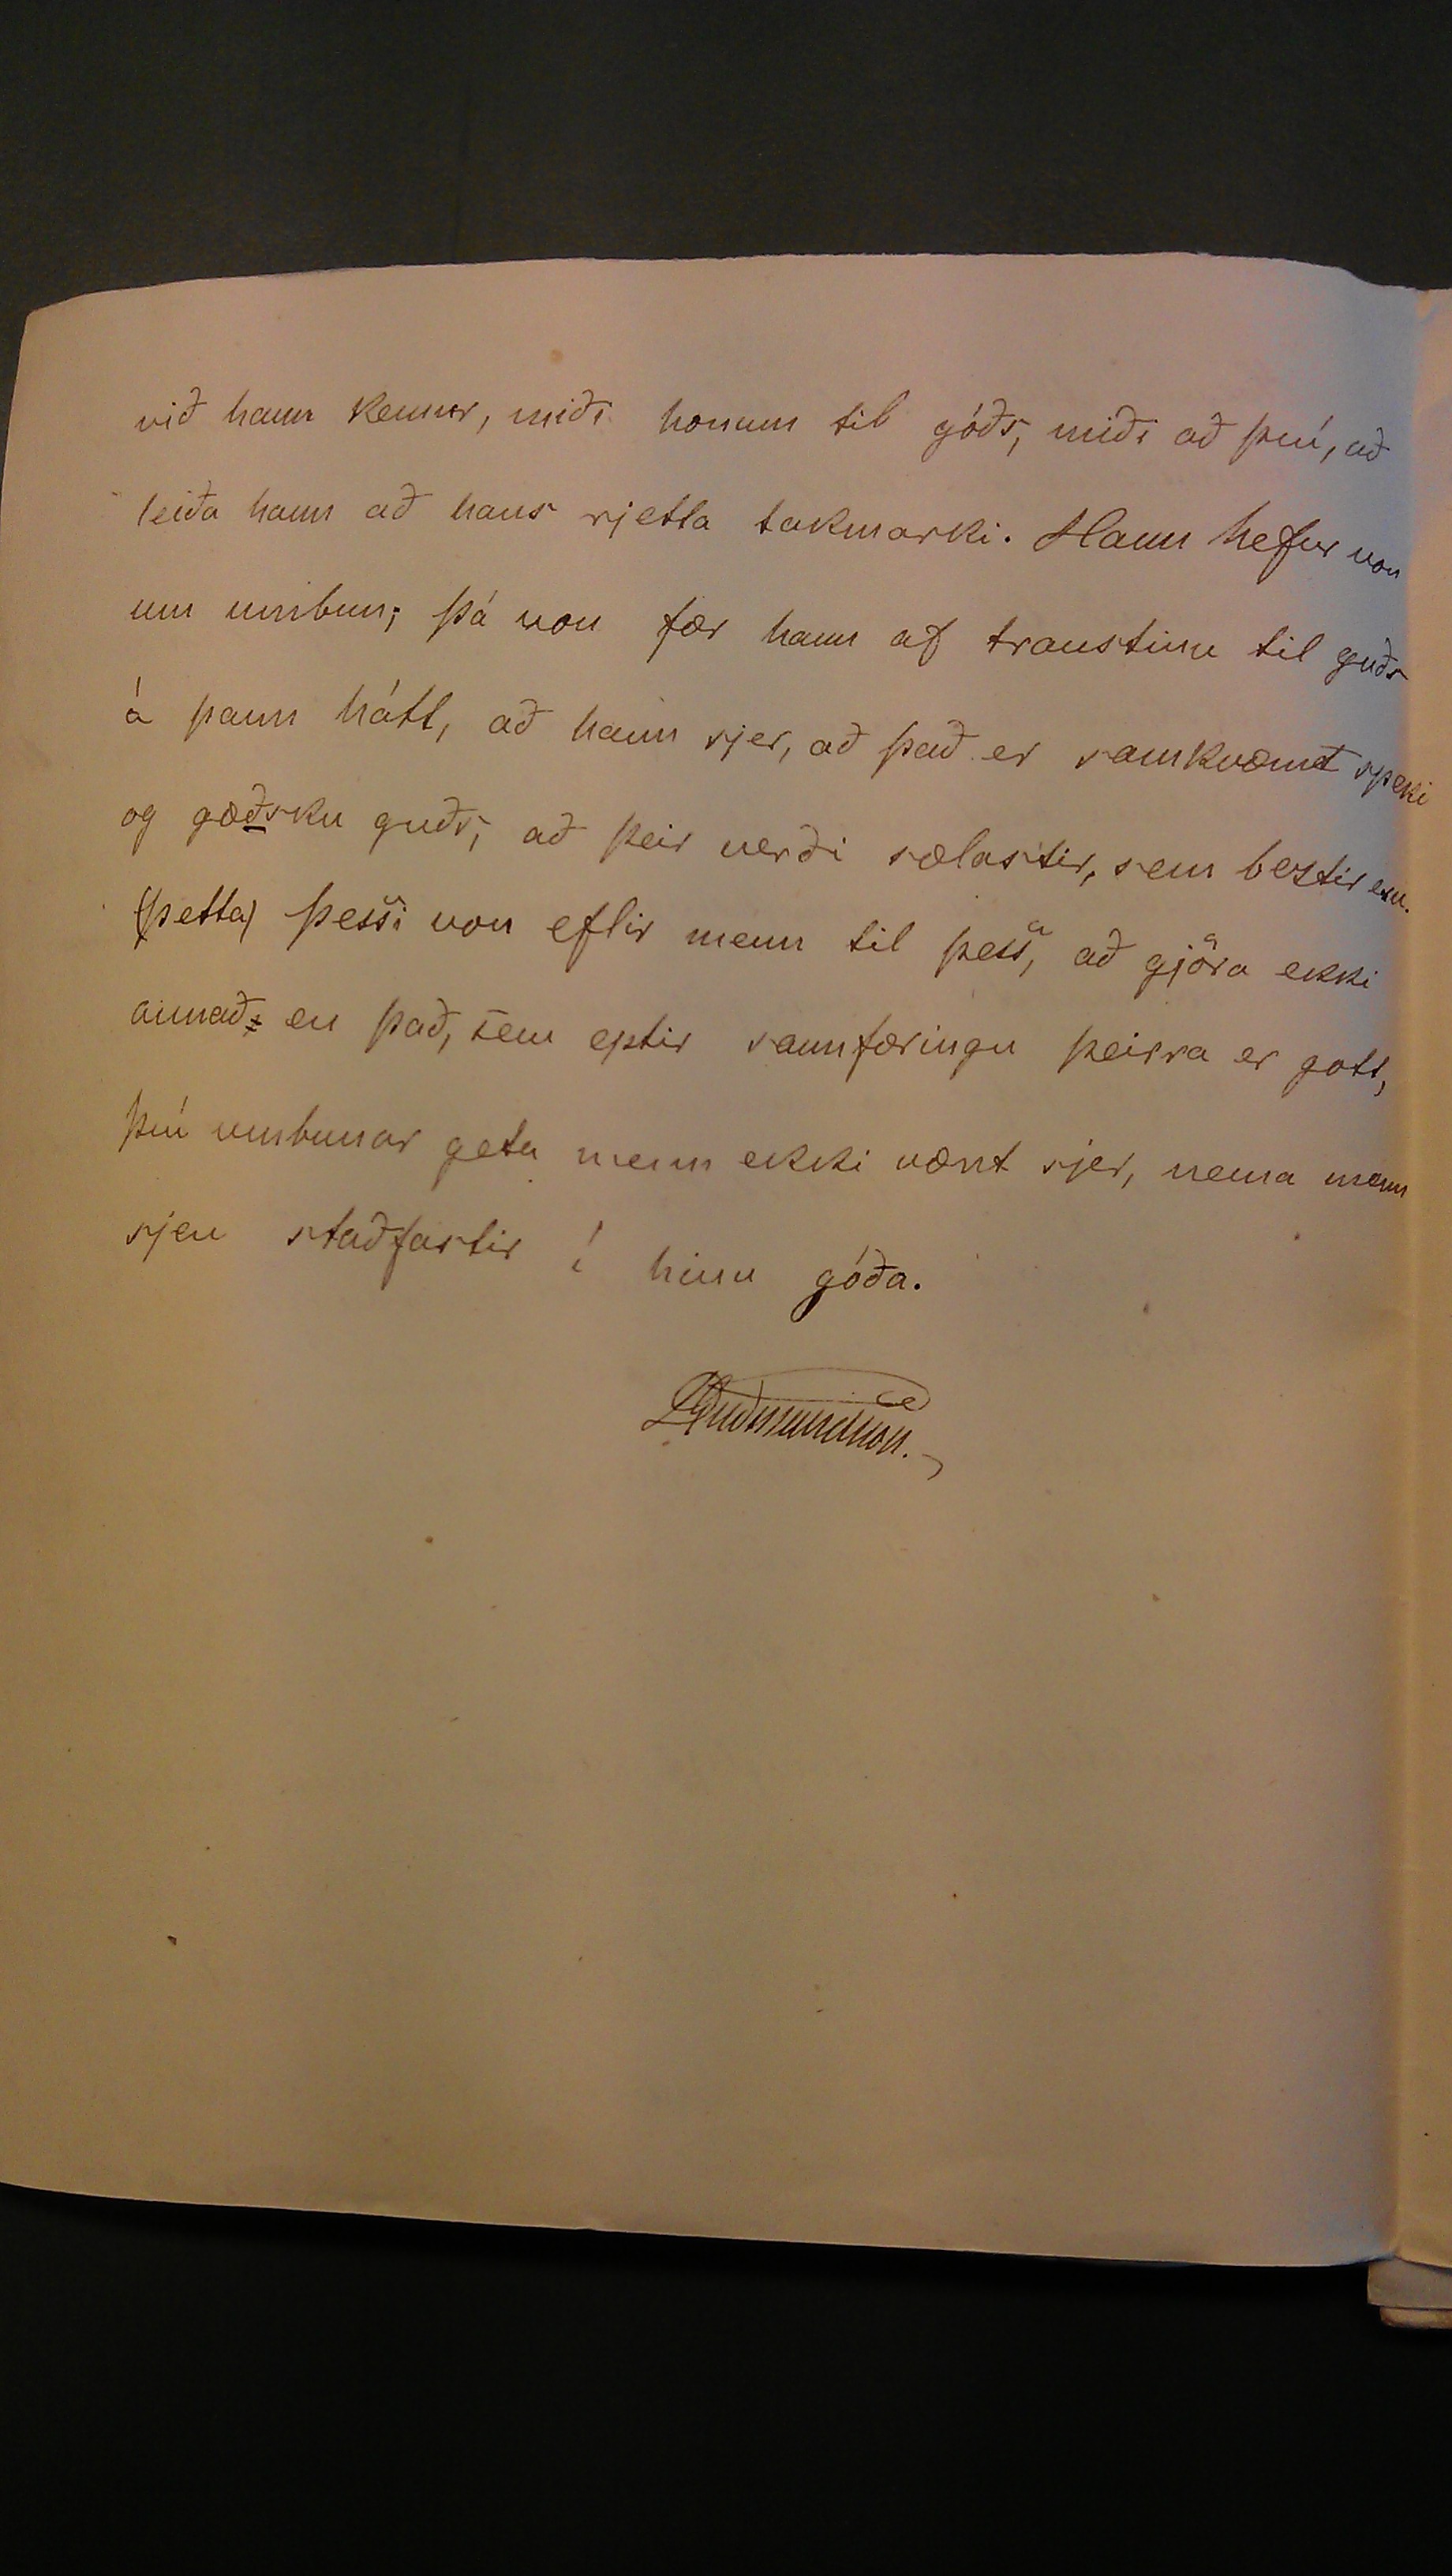 við hann kemur, miði honum til góðs, miði að því, að
leiða hann að hans rjetta takmarki. Hann hefur von
um umbun; þá von fær hann af traustinu til guðs
á þann hátt, að hann sjer, að það er samkvæmt speki
og gæðsku guðs, að þeir verði sælastir, sem beztir eru.
(þetta) Þessi von eflir menn til þess, að gjöra ekki
annað en það, sem eptir sannfæringu þeirra er gott,
því umbunar geta menn ekki vænt sjer, nema menn
sjeu staðfastir í hinu góða.
Guðmundsson.